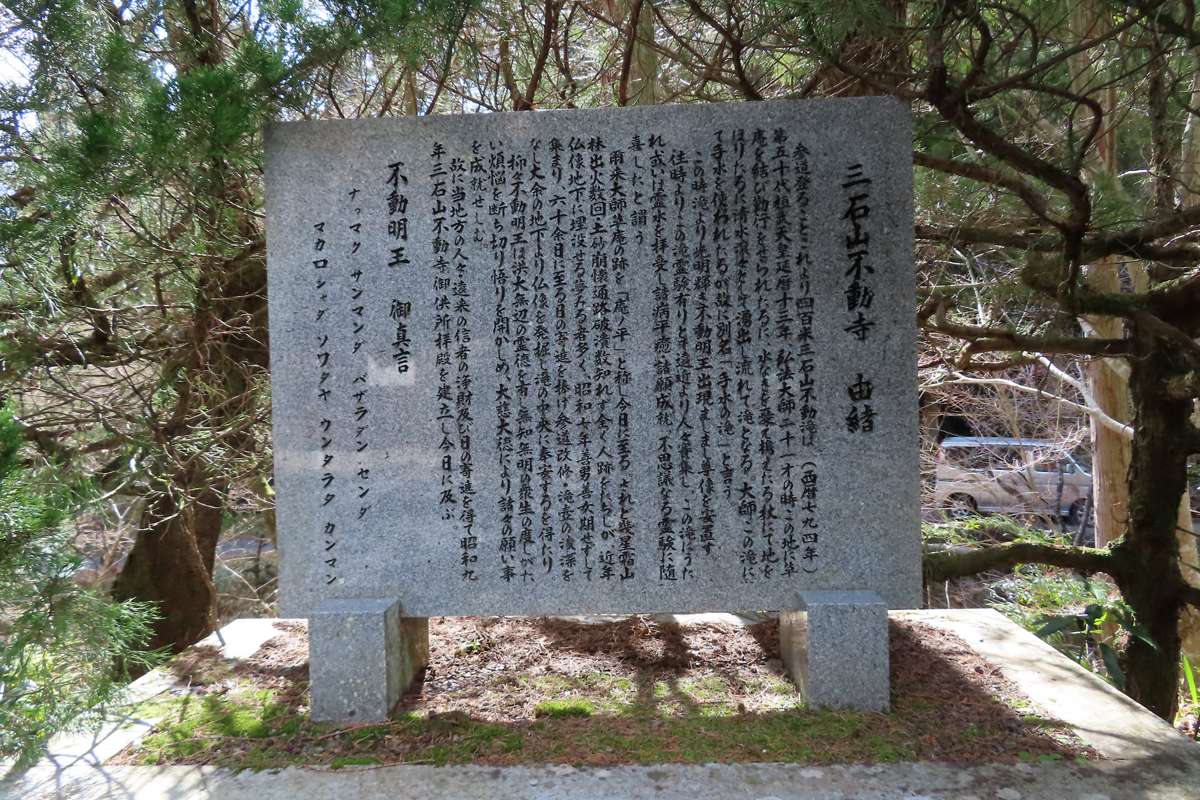 三石山不動寺 由緒
参道登ることこれより四百米三石山不動滝は、(西暦七九四年)
第五十代桓武天皇延暦十三年、弘法大師二十一才の時この地に草
庵を結び勤行をせられたるに、水なきを憂て携えたる杖にて地を
ほりしに清水滾々として湧出し流れて滝となる、大師この滝に
て手水を使われしが故に別名「手水の滝」と言う
この時滝より光明輝き不動明王出現ましまし尊像を安置す
往時よりこの滝霊験有りとて遠近より人々蝟集し、この滝にうた
れ或いは霊水を拝受し諸病平癒、諸願成就、不思議なる霊験に随
喜したと謂う
爾来大師草庵の跡を「庵ノ平」と称し今日に至る、されど幾星霜山
林出火数回、土砂崩懐通路破潰数知れず全く人跡をとちしが、近年
仏像地下に埋没せる夢みる者多く、昭和七年善男善女期せずして
集まり、六十余日に至る日の寄進を捧げ参道改修、滝壺の濠渫を
なし丈余の地下より仏像を発掘し滝の中央に奉安するを得たり
抑々不動明王は洪大無辺の霊徳を帯び無知無明の衆生の度しがた
い煩悩を断ち切り悟りを開かしめ、大慈大徳により諸々の願い事
を成就せしむ
故に当地方の人々遠来の信者の浄財及び日の寄進を得て昭和九
年三石山不動寺御供所拝殿を建立し今日に及ぶ
不動明王 御真言
ナゥマク サンマンダ バザラダン センダ
マカロシャダ ソワタヤ ウンタラタ カンマン